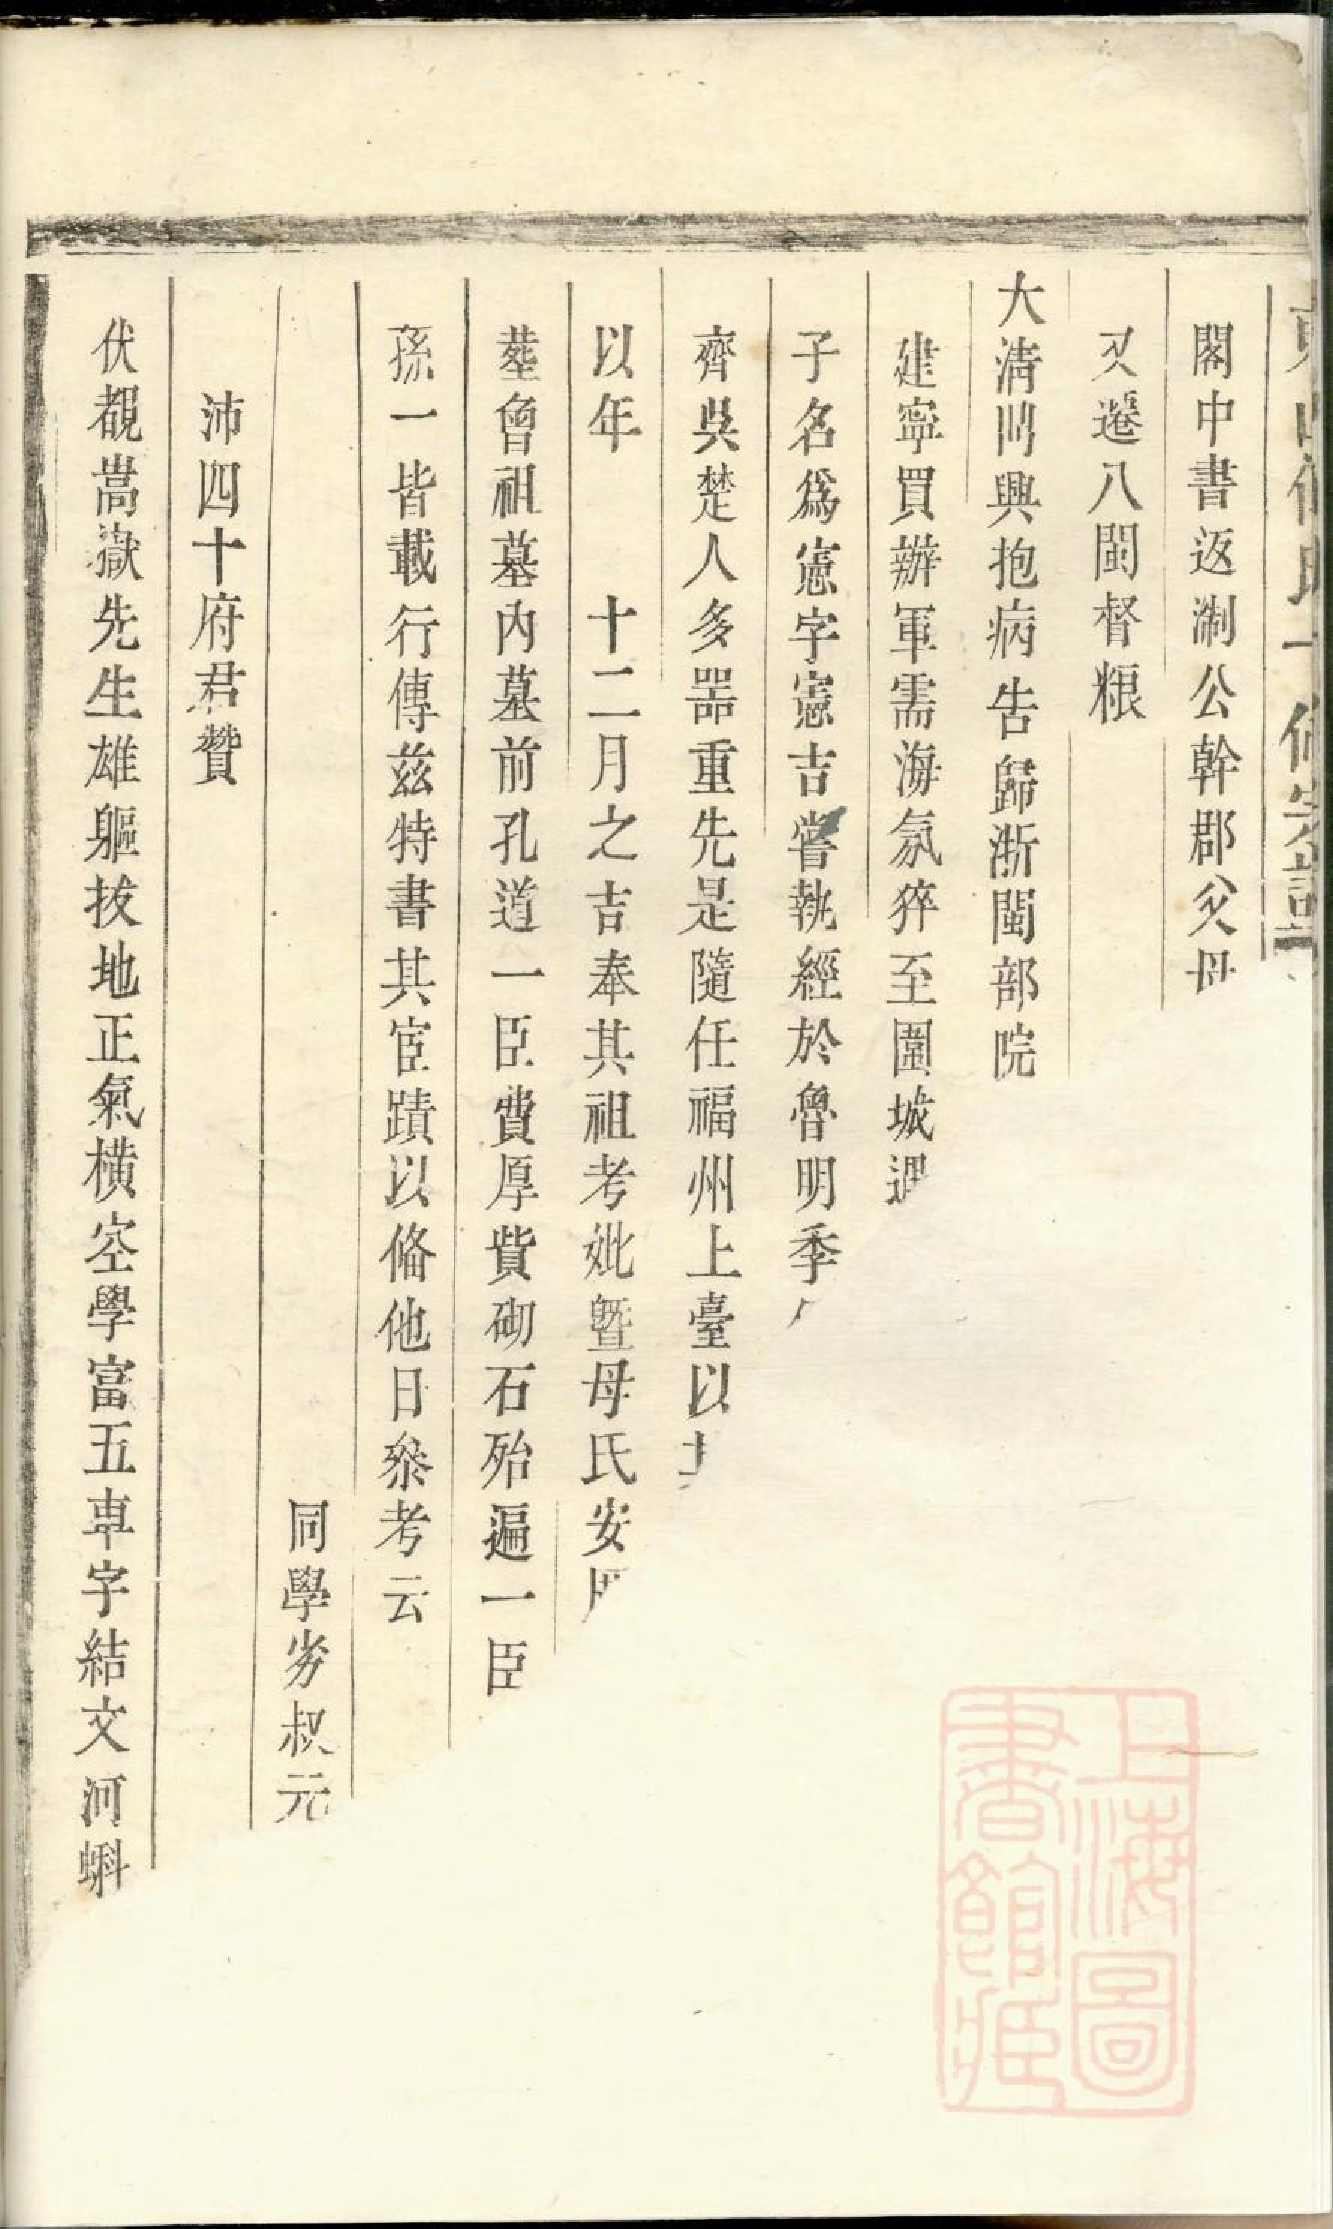 閣中書返淛公幹郡父母
又遷八閩督粮
大淸開興抱病告歸浙閩部院
建寧買辦軍需海氛猝至圍城遇
子名爲憲字憲吉嘗執經於魯明季
齊吳楚人多器重先是隨任福州上臺以
以年 十二月之吉奉其祖考妣曁母氏安
塟曾祖墓内墓前孔道一臣費厚貲砌石殆遍一臣
孫一皆載行傳茲特書其宦蹟以俻他日叅考云
同學劣叔元
沛四十府君贊
伏覩嵩嶽先生雄軀拔地正氣橫空學富五車字結文河蝌
上海圖書館藏